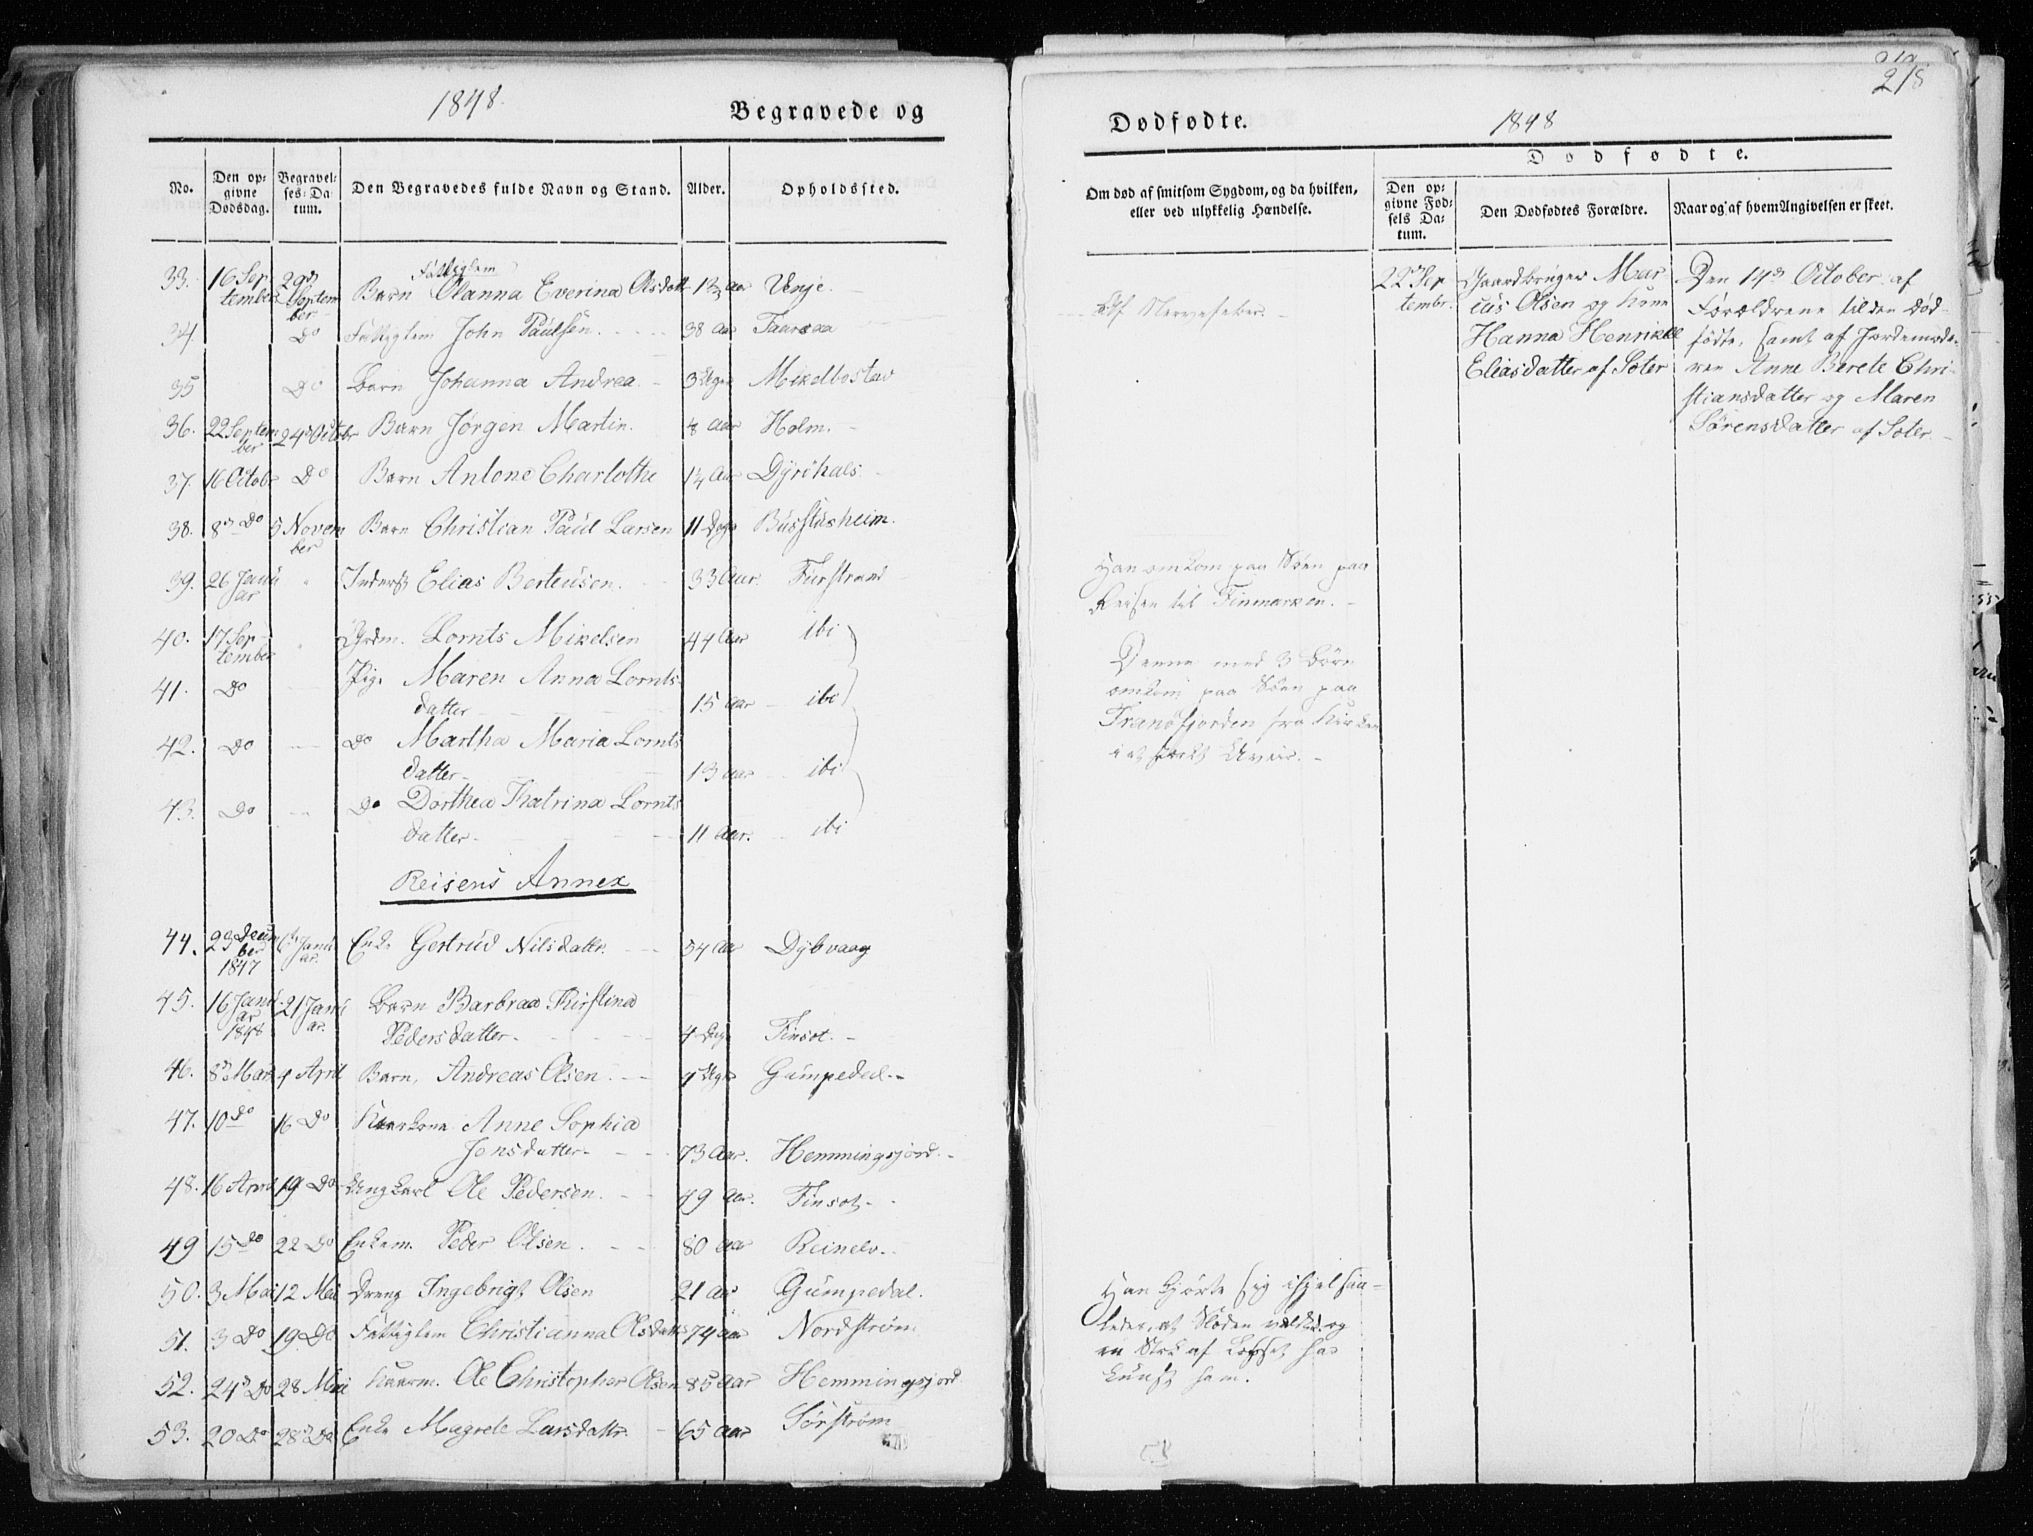 1848.
Begravede og
No.
Den op-
givne
Dødsdag.
Begravel-
ses-Da-
tum.
Den Begravedes fulde Navn og Stand.
Alder.
Opholdssted.
33. 16 Sep- tember 29de Septem- ber Barn Fattiglem Olanna Everina Olsdatt 1 3/4 Aar Venje
34. Do Fattiglem John Paulsen. 38 Aar Taaraaa
35 Do Barn Johanna Andrea 3 Uger Mikelbostad
36. 22 Septem- ber 24de Octobr Barn Jørgen Martin. Aar Holm.
37. 16 Octobr Do Barn Antone Charlothe 1 1/4 Aar Dyrøhals
38. 8de Do 5 Novem- ber Barn Christian Paul Larsen 11 Dage Busstusheim.
39. 26 Janu- ar " Inderst Elias Berteusen. 33 Aar. Furstrand
40. 17 Sep- tember " Grdm. Lornts Mikelsen 44 Aar ibi
41. Do Pig. Maren Anna Lornts-
datter 15 Aar ibi
42. Do Do Martha Maria Lornts
datter 13 Aar ibi
43. Do Do Dorthea Katrina Lornts
datter 11 Aar. ibi
Reisens Annex
44. 23 Decem- ber 1847 Janu- ar. Enke Gertrud Nilsdattr. 54 Aar Dybvaag
45. 16 Janu- ar 1848 21 Janu- ar. Barn Barbraa Kirstina
Pedersdatter 4 Dage Finsæt.
46. 8de Mars 9 April Barn, Andreas Olsen. Uger Gumpedal.
47. 10de Do 16 Do Kaarkone Anne Sophia
Jonsdatter 73 Aar. Hemmingsjord.
48. 16 April 19 Do Ungkarl Ole Pedersen. 49 Aar. Finsæt
49 15 Do 22 Do Enkem. Peder Olsen. 80 Aar Reinelv.
50. 3 Mai 12 Mai Dreng Ingebrigt Olsen 21 Aar Gumpedal.
51. 3 Do 19 Do Fattiglem Christianna Olsdattr 74 Aar Nordstrøm
52. 24de Do 28 Mai Kaarm. Ole Christopher Olsen 85 Aar Hemmingsjord
53. 20 Do 28de Do Enke Magrete Larsdattr. 65 Aar Sørstrøm
218
Dødfødte.
1848
Dødfødte.
Om død af smitsom Sygdom, og da hvilken,
eller ved ulykkelig Hændelse.
Den op-
givne Fød-
sels Da-
tum.
Den Dødfødtes Forældre.
Naar og af hvem Angivelsen er skeet.
Af Nervefeber.
22de Sep
tembr.
Gaardbruger Mar-
cus Olsen og Kone
Hanna Henrikke
Eliasdatter af Soter
Den 14de October af
Forældrene til den død-
fødte, samt af Jordemode-
ren Anne Berete Chri-
stiansdatter og Maren
Sørensdatter af Soter
Han omkom paa Søen paa
Reisen til Finmarken.
Denne med 3 Børn
omkom paa Søen paa
Tranøfjorden fra Kirken
i et stærkt Uveir.
Han kjørte sig ihjel saa-
ledes, at Slæden væltede og
en Stok af Læsset
ham.